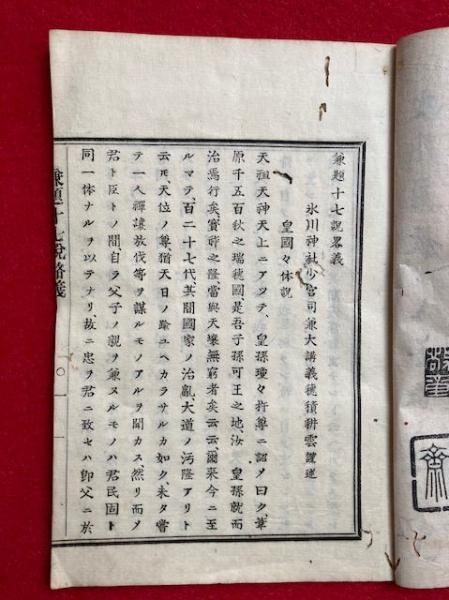 兼題十七説畧義
氷川神社少宮司兼大講義穂積耕雲謹述
皇國々体説
天祖天神天上ニアツテ、皇孫瓊々杵尊ニ詔ノ曰ク、葦
原千五百秋之瑞穂國、是吾子孫可王之地、汝皇孫就而
治焉行矣、寳祚之隆、當與天壤無窮者矣云云、爾来今ニ至
ルマテ、百二十七代其間國家ノ治亂、大道ノ汚隆アリト
云𪜈、天位ノ尊猶天日ノ踰ユヘカラサルカ如ク、未タ嘗
テ一人禪讓放伐等ヲ謀ルモノアルヲ聞カス、然リ而〆
君ト臣トノ間、自ラ父子ノ親ヲ兼ヌルモノハ君民固ト
同一体ナルヲ以テナリ、故ニ忠ヲ君ニ致セハ即父ニ於
兼題十七説略義
〇
一